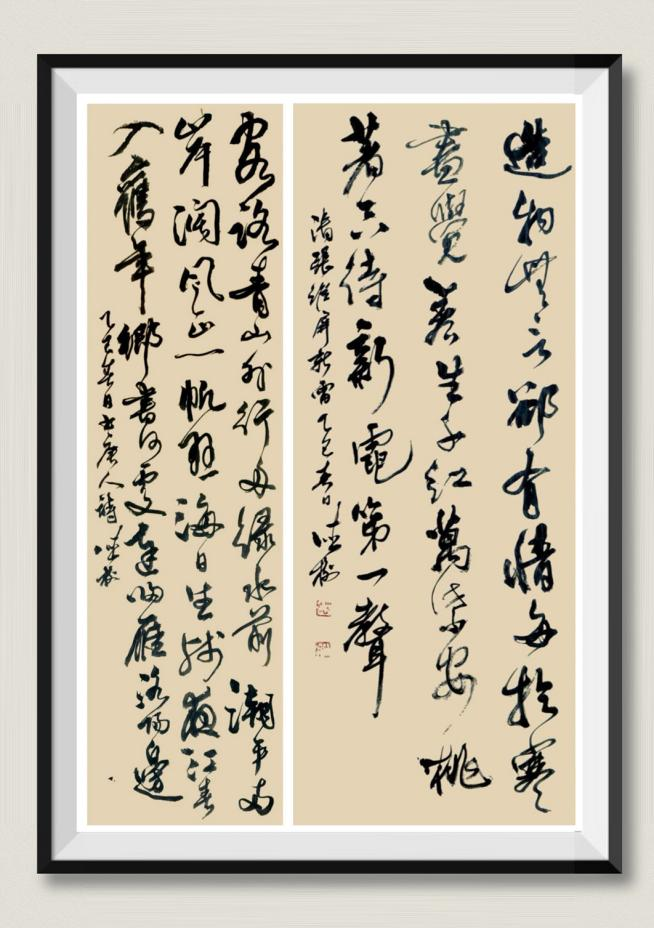 造物無言郤有情每於寒
盡覺春生千红萬紫安排
著只待新雷第一聲
清張維屏新雷乙巳春日
客路青山外行舟緑水前潮平兩
岸闊風正一帆懸海日生殘夜江春
入舊年鄉書何處達歸雁洛陽邊
乙巳春日書唐人詩